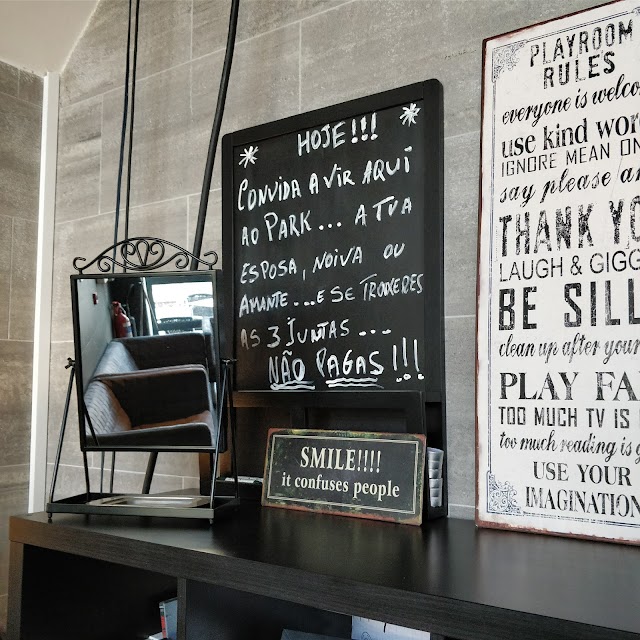 HOJE!!!
CONVIDA A VIR AQUI
AO PARK... A TUA
ESPOSA, NOIVA OU
AMANTE....E SE TROUXERES
AS 3 JUNTAS...
NÃO PAGAS!!!
SMILE!!!!
it confuses people
PLAYROOM
RULES
everyone is
use kind
IGNORE MEAN
say please
THANK
LAUGH &
BE
clean up after
PLAY
TOO MUCH TV IS
too much reading is
USE YOUR
IMAGINATION